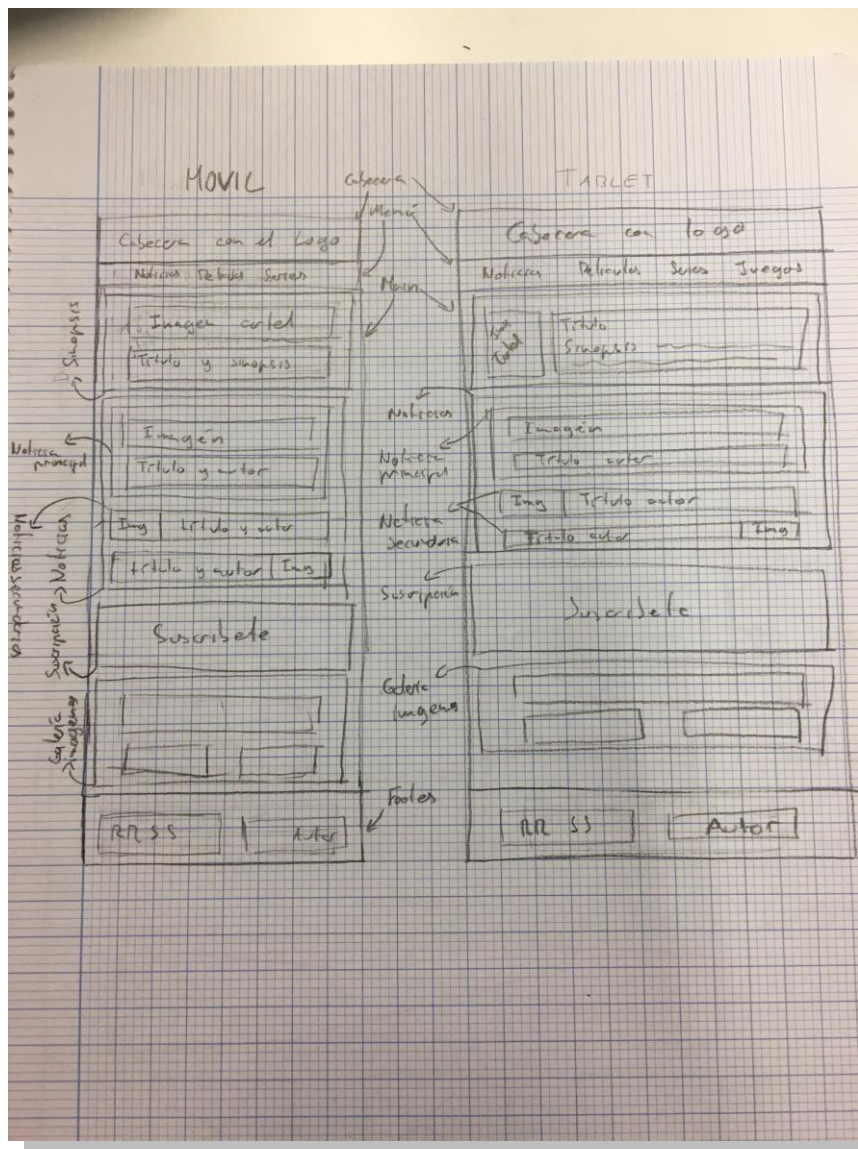 MOVIL
Cabecera con el Logo
Noticias Peliculas Series
Sinopsis
Imagen cartel
Título y sinopsis
Noticia principal
Imagén
Título y autor
Img título y autor
título y autor Img
Noticias secundarias
Noticias
Suscripción
Suscribete
Galería imagenes
RRSS Autor
Cabecera
Menú
Main
Noticias
Noticia principal
Noticia secundaria
Suscripción
Galería imagenes
Footer
TABLET
Cabecera con logo
Noticias Peliculas Series Juegos
Img Cartel
Título
Sinopsis
Imagén
Título autor
Img Título autor
Título autor Img
Suscribete
RRSS Autor